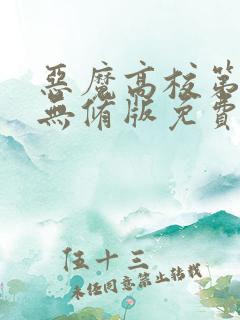 惡魔高校第
無修版免費
伍十三
未经同意禁止转载